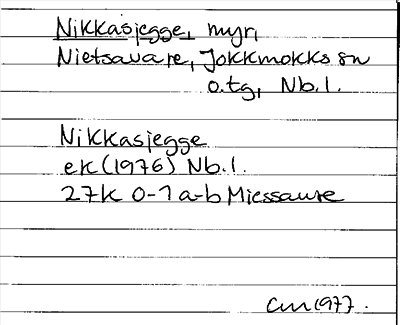 Nikkasjegge, myr,
Nietsavare, Jokkmokks sn
o.tg, Nb.l.
Nikkasjegge
ek (1976) Nb.l.
27K 0-1 a-b Miessaure
1977.